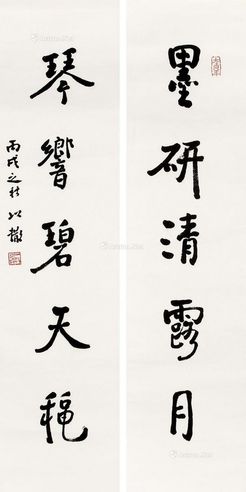 墨研清露月
琴響碧天穐
丙戌之秋